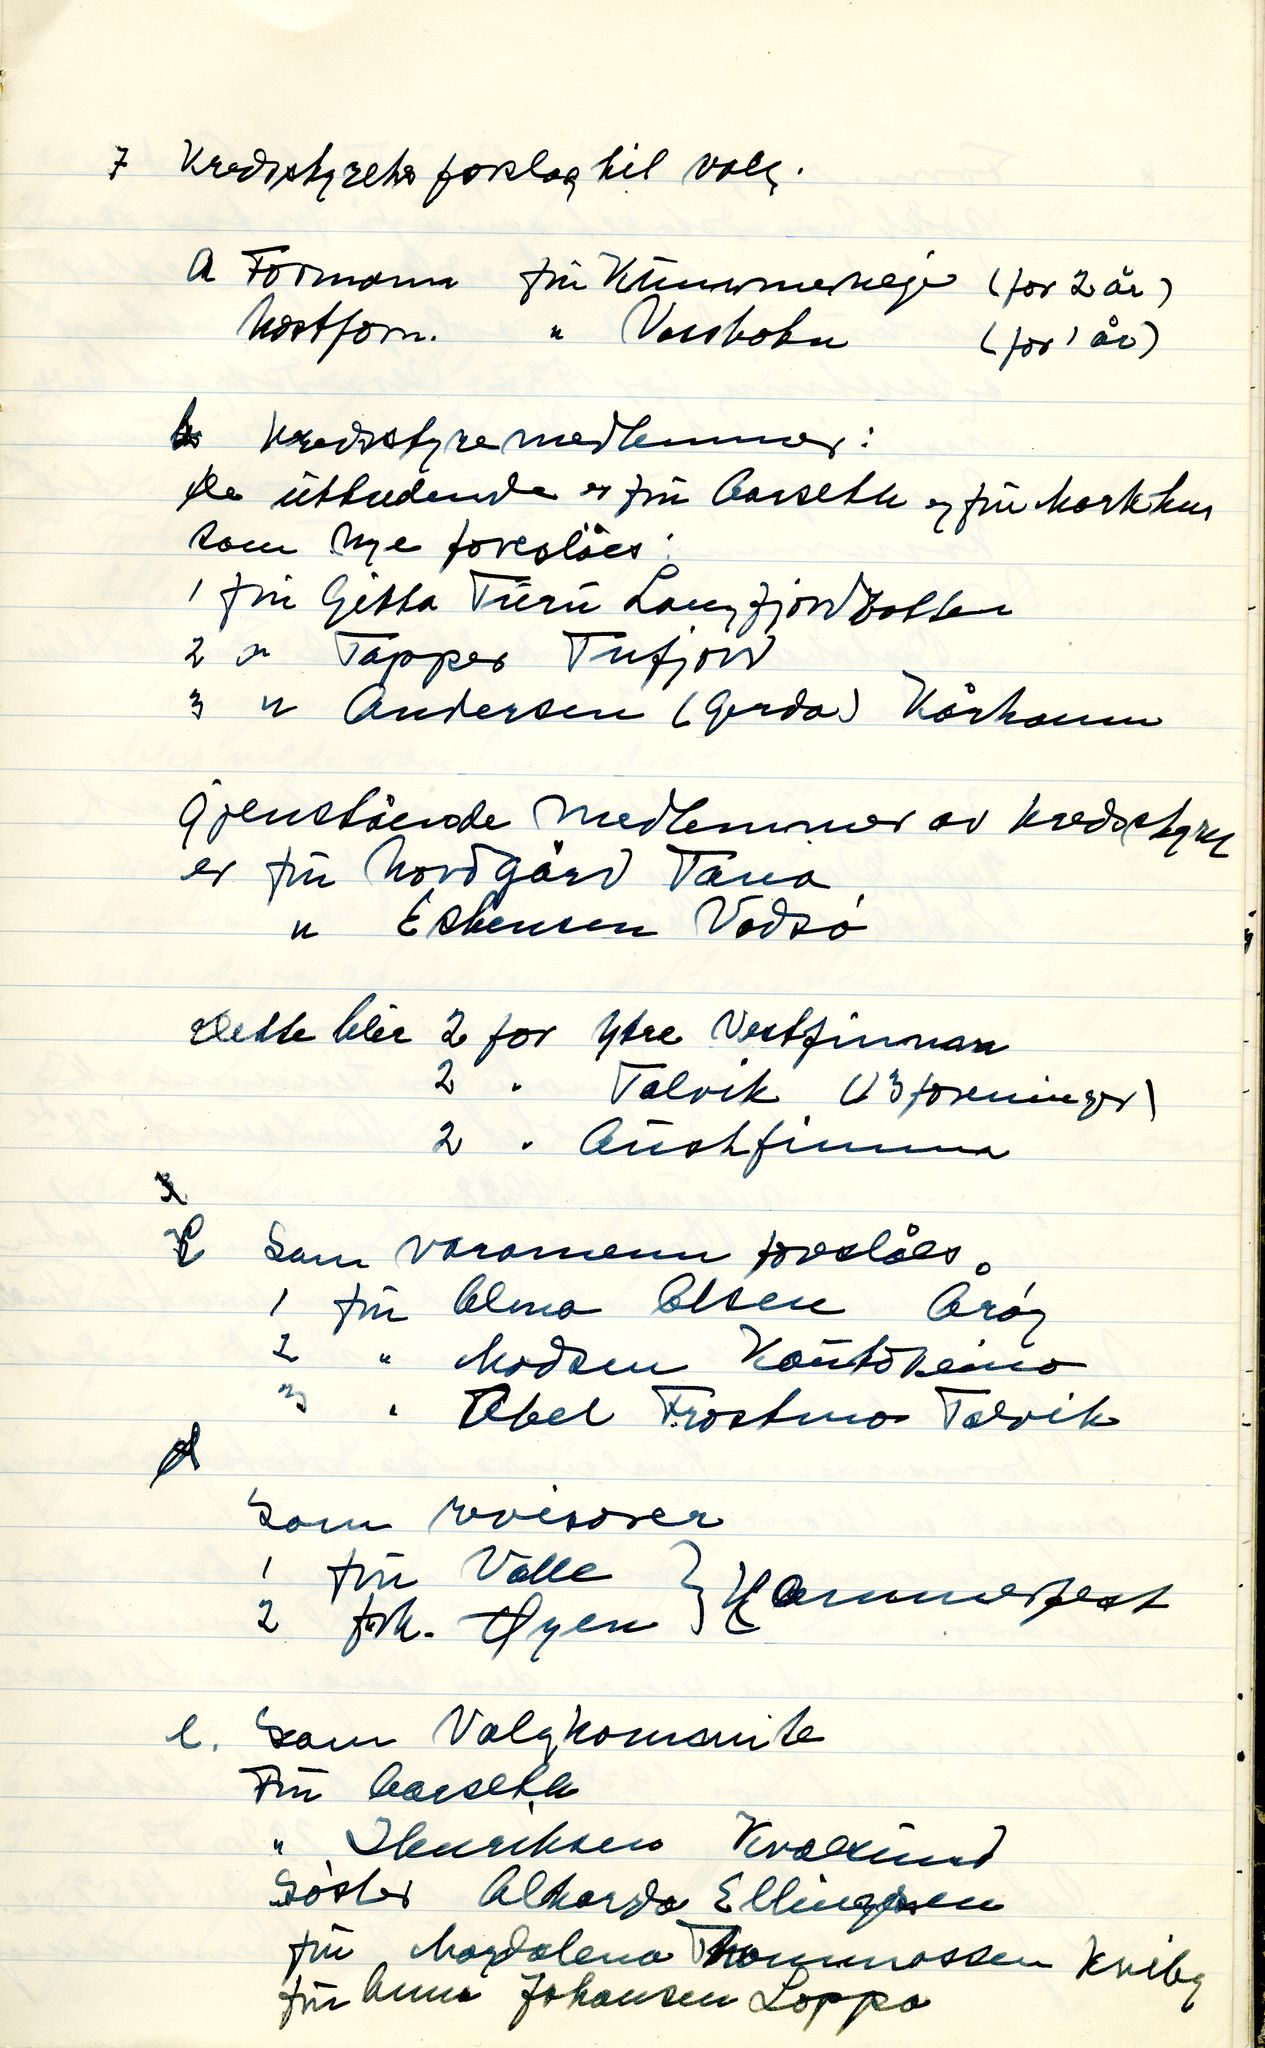 7 Kredsstyrets forslag til valg.
A Formann frü (for 2 år)
Nestform. " (for 1 år)
b Kredsstyremedlemmer:
De üttredende er frü Aarseth og frü
som nye foreslåes:
1 frü Gitta Türü Langfjordbotten
2 " Tapper Tufjord
3 " Andersen (Gerda) Kårhamn
Gjenstående medlemmer av Kredsstyre
er frü Nordgård Tana
" Esbensen Vadsö
Dette blir 2 for Ytre Vestfinnmark
2 " Talvik (13 foreninger)
2 " Aüstfinnma
C Som varamenn foreslåes.
1 frü Alma Olsen Aröy
2 " Madsen Kaütokeino
3 " Abel Frostmo Talvik
d
Som revisorer
1 frü Valle } Hammerfest
2 frk. Øyen
e. Som Valgkommite
Frü Aarseth
" Henriksen Kvalsünd
Söster Alharda Ellingsen
frü Magdalena Thommassen Kviby
frü Anna Johansen Loppa